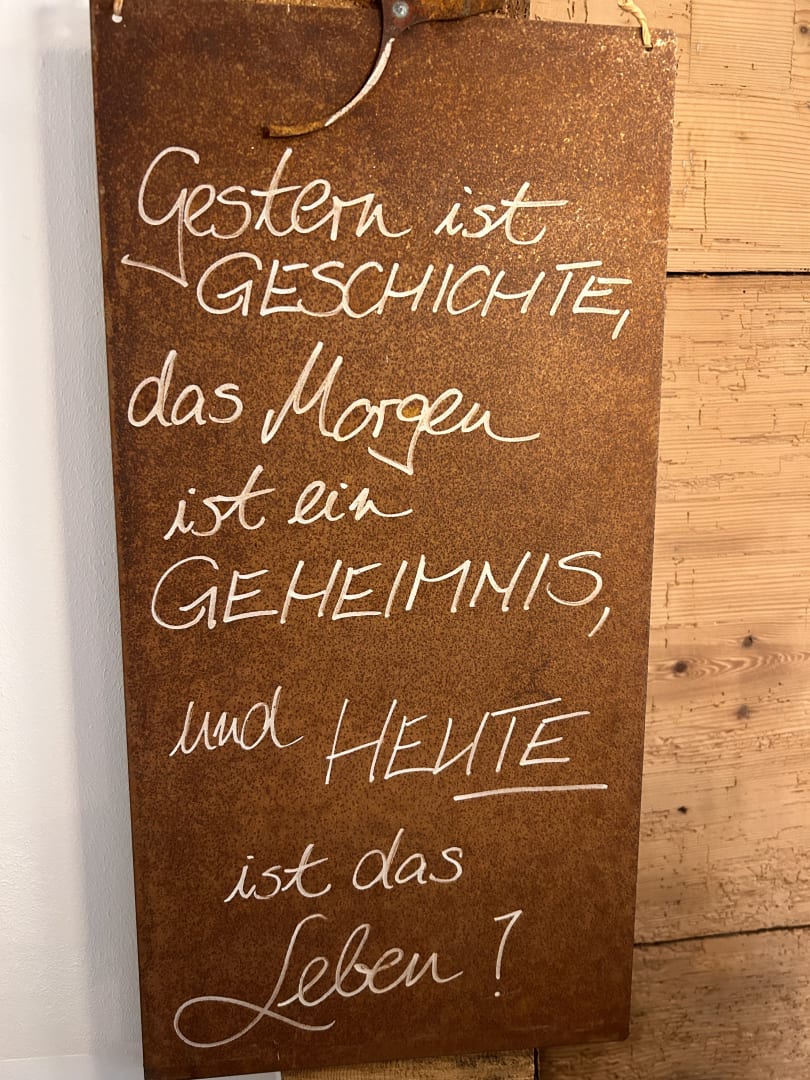 Gestern ist
GESCHICHTE,
das Morgen
ist ein
GEHEIMNIS,
und HEUTE
ist das
Leben!